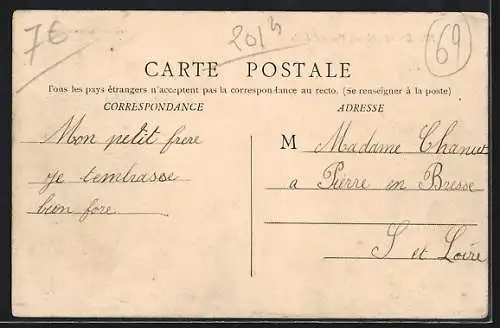 76
201h
69
CARTE POSTALE
Tous les pays étrangers n'acceptent pas la correspondance au recto. (Se renseigner à la poste)
CORRESPONDANCE
ADRESSE
Mon petit frere
je tembrasse
bien fore
M Madame Chanut
a Pierre en Bresse
S et Loire